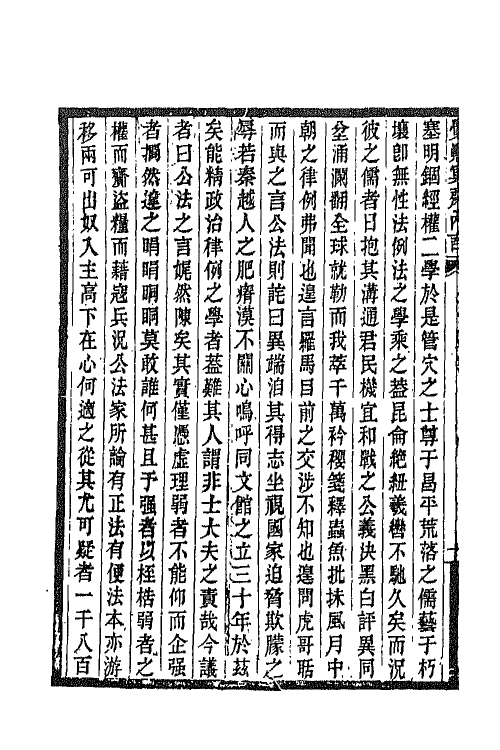 塞明錮經權二學於是管穴之士尊于昌平荒落之儒藝于朽
壤卽無性法例法之學乘之葢昆侖絶紐羲轡不馳久矣而況
彼之儒者日抱其溝通君民機宜和戰之公義決黑白評異同
坌涌瀾翻全球就勒而我萃千萬衿稷箋釋蟲魚批抹風月中
朝之律例弗聞也遑言羅馬目前之交涉不知也遑問虎哥聒
而與之言公法則詫曰異端洎其得志坐視國家迫脅欺朦之
辱若秦越人之肥瘠漠不關心嗚呼同文館之立三十年於茲
矣能精政治律例之學者葢難其人謂非士大夫之責哉今議
者曰公法之言娓然陳矣其實僅憑虛理弱者不能仰而企强
者擱然違之睊睊㗋㗋莫敢誰何甚且予强者以桎梏弱者之
權而齎盜糧而藉寇兵況公法家所論有正法有便法本亦游
移兩可出奴入主高下在心何適之從其尤可疑者一千八百